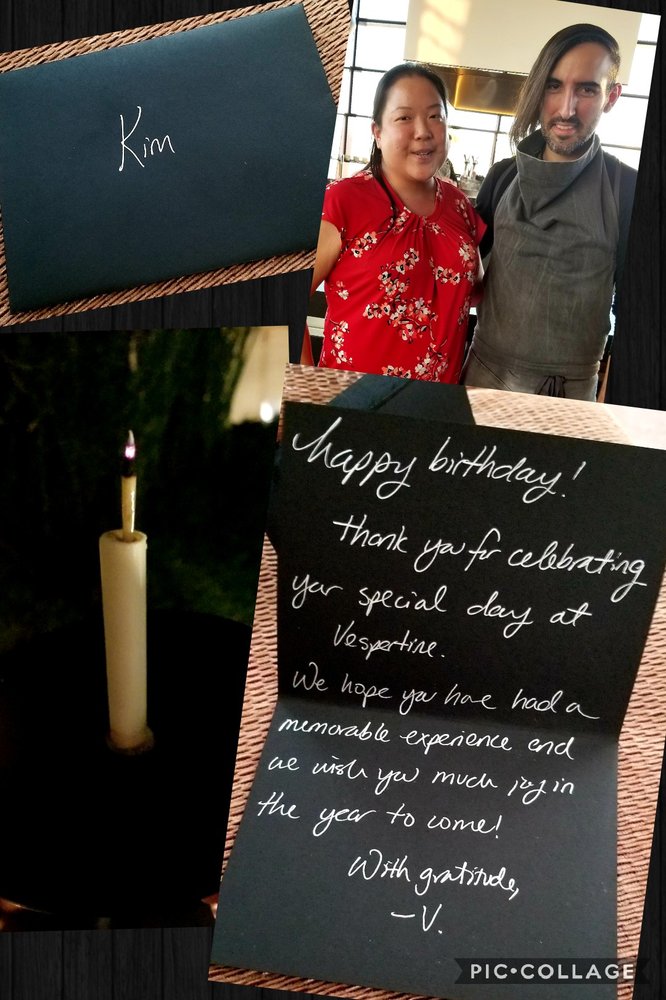 Kim
happy birthday!
Thank you for celebrating
your special day at
Vespertine.
We hope you have had a
memorable experience and
we wish you much joy in
the year to come!
With gratitude,
-V.
PIC•COLLAGE